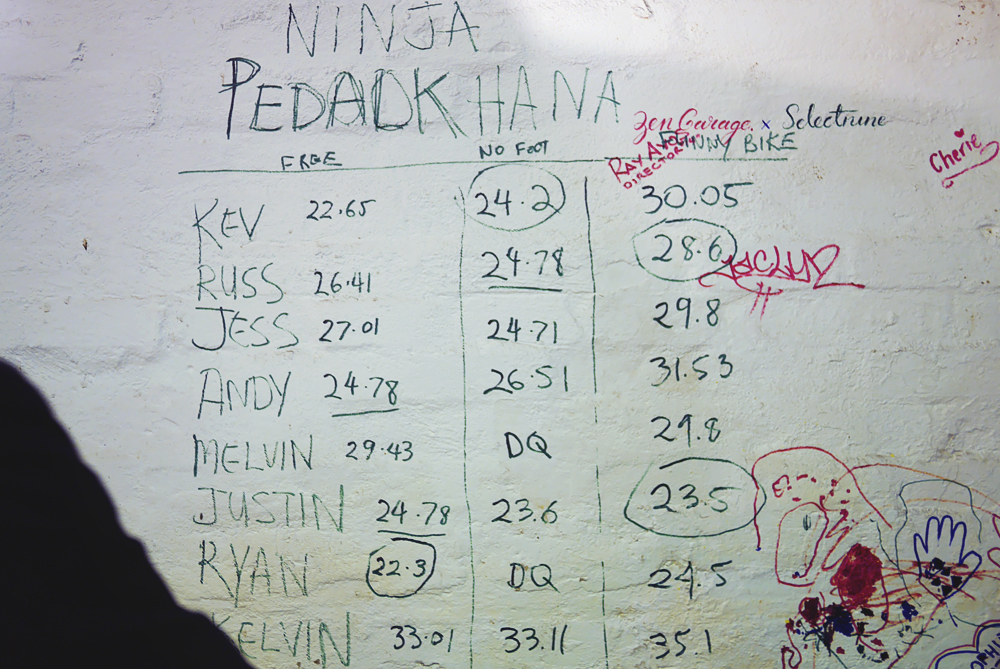 NINJA
PEDADKHANA
Zen Garage. x Selectnine
FREE NO FOOT FUNNY BIKE
RAY AVOS
DIRECTOR
Cherie
KEV 22.65 24.2 30.05
RUSS 26.41 24.78 28.6
JESS 27.01 24.71 29.8
ANDY 24.78 26.51 31.53
MELVIN 29.43 DQ 29.8
JUSTIN 24.78 23.6 23.5
RYAN 22.3 DQ 24.5
KELVIN 33.01 33.11 35.1